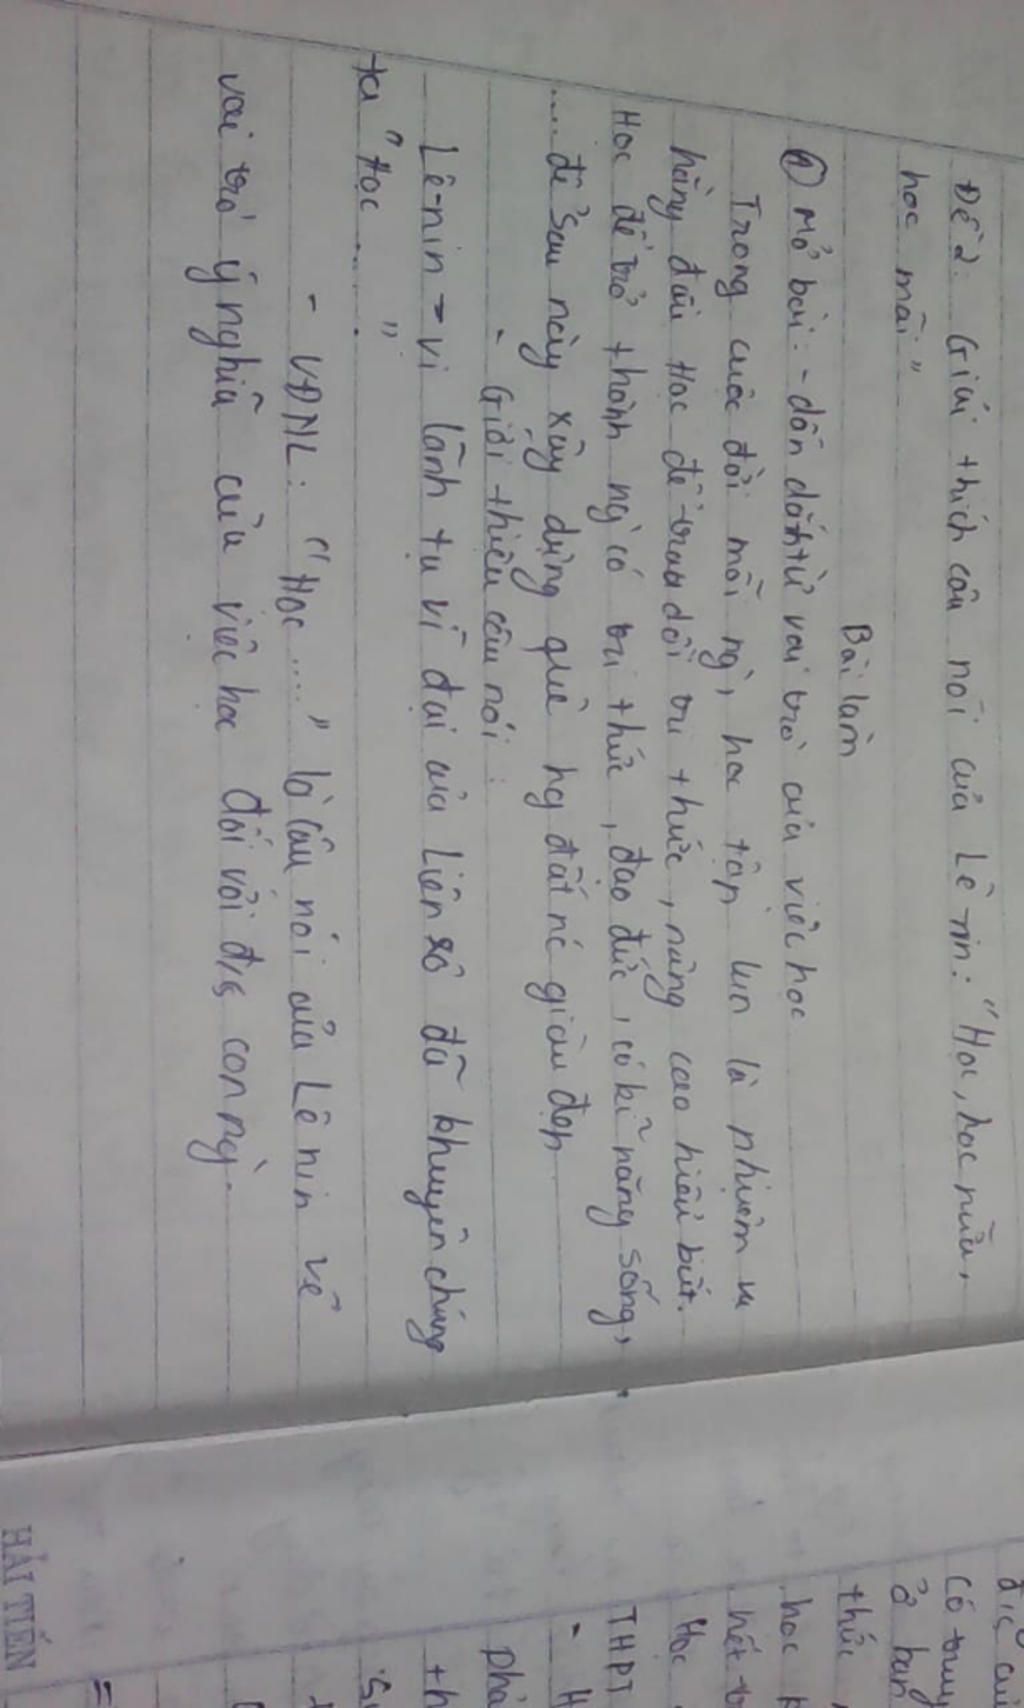 Đề 2: Giải thích câu nói của Lê nin: "Học, học nữa,
học mãi"
Bài làm
① Mở bài: - dẫn dắt từ vai trò của việc học
Trong cuộc đời mỗi ng`, học tập luôn là nhiệm vụ
hàng đầu. Học để trau dồi tri thức, nâng cao hiểu biết.
Học để trở thành ng` có tri thức, đạo đức, có kĩ năng sống,
.... để sau này xây dựng quê hg đất nc giàu đẹp
- Giới thiệu câu nói:
Lê-nin - vị lãnh tụ vĩ đại của Liên Xô đã khuyên chúng
ta "Học ....."
- VĐNL: "Học ...." là câu nói của Lê nin về
vai trò ý nghĩa của việc học đối với con ng`.
có
ở ban
thức
học
Học
THPT
HẢI TIẾN